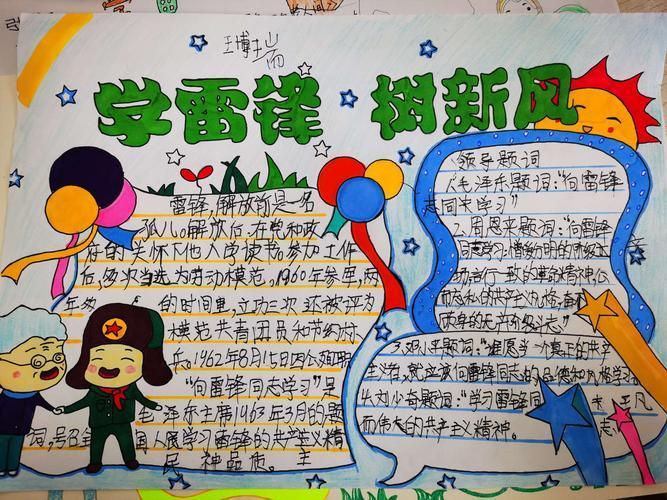 王博瑞
学雷锋 树新风
雷锋,解放前是一名
孤儿。解放后,在党和政
府的关怀下他入学读书。参加工作
后,多次当选为劳动模范。1960年参军,两
年多 的时间里,立功三次 还被评为
模范共青团员和节约标
兵。1962年8月15日因公殉职
"向雷锋同志学习"是
毛泽东主席1963年3月的题
词,号召全 国人民学习雷锋的共产主义精
民 神品质。 主
领导题词
毛泽东题词:"向雷锋
志同学习"
2.周恩来题词:"向雷锋
同志学习:憎爱分明的
言行一致的革命精神公
而忘私的共产主义风格奋不
身的无产阶级斗志"
3.邓小平题词:"谁愿当一个真正的共产
主义者,就应该向雷锋同志的品德和风格学习。
4.刘少奇题词:"学习雷锋同 平凡
而伟大的共产主义精神。 志